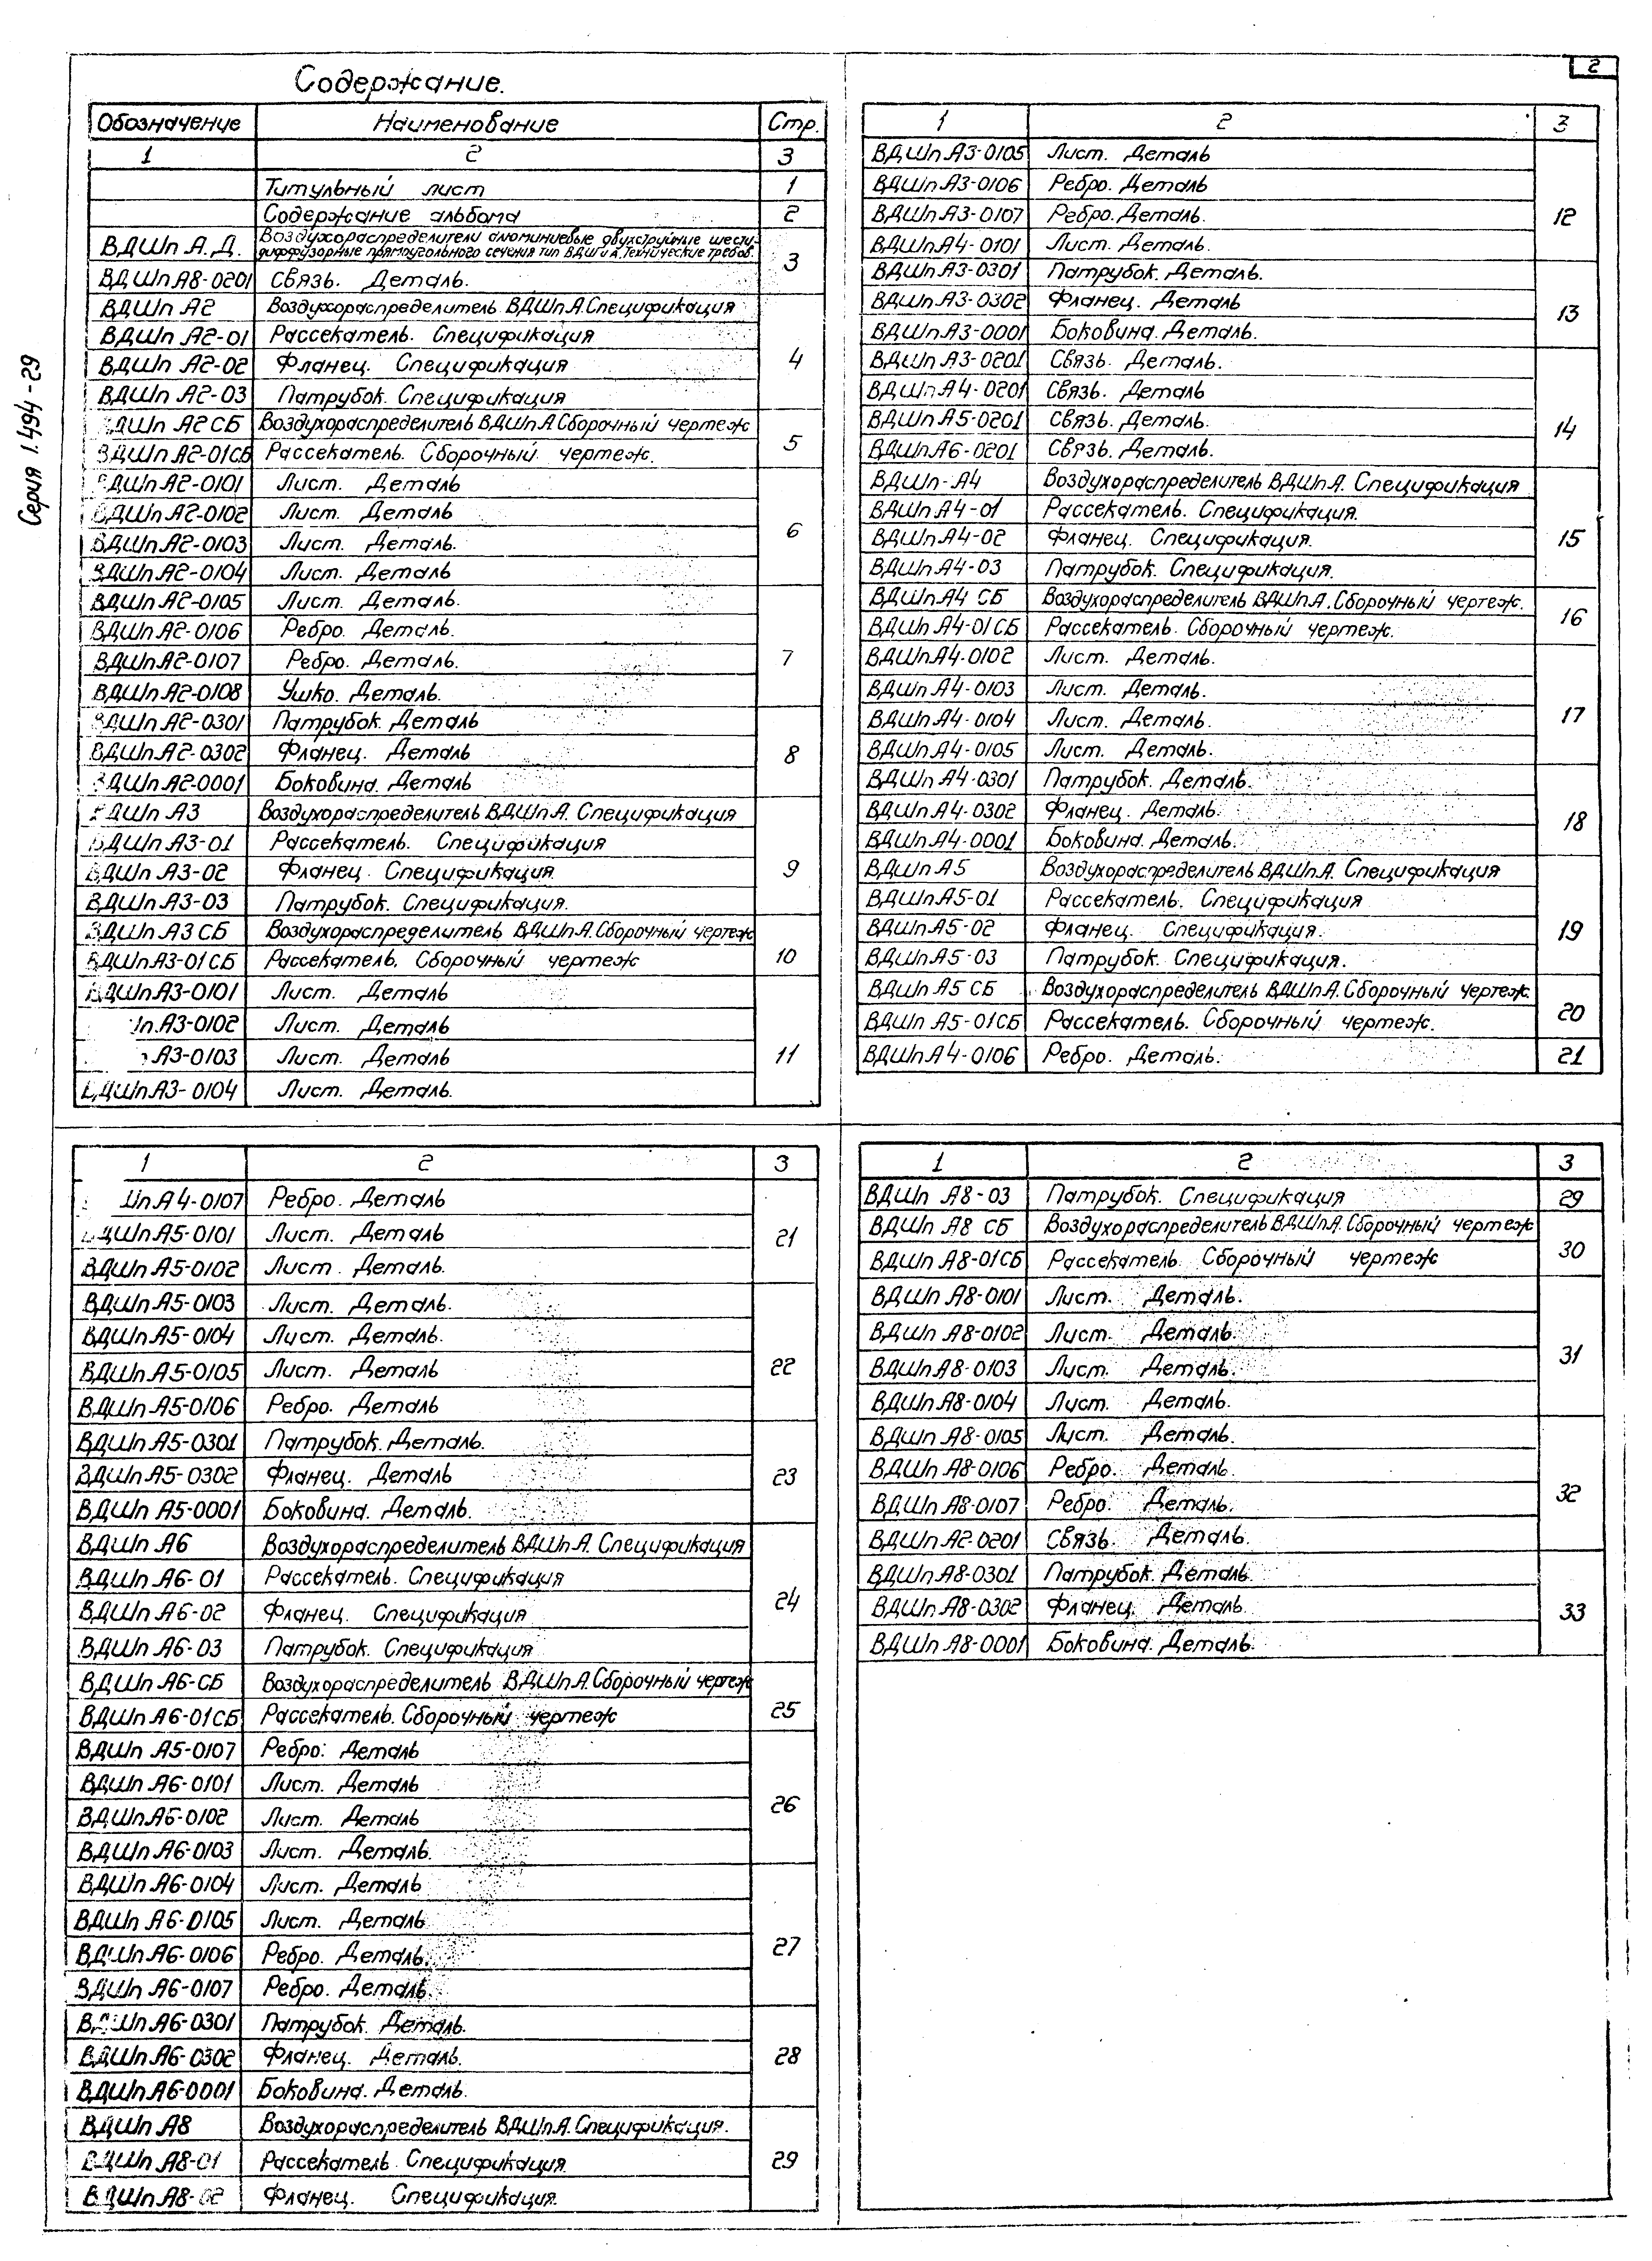 2
Серия 1.494-29
Содержание.
Обозначение Наименование Стр.
1 2 3
Титульный лист 1
Содержание альбома 2
ВДШп А.Д. Воздухораспределители алюминиевые двухструйные шести-
диффузорные прямоугольного сечения тип ВДШп А. Технические требов. 3
ВДШп А8-0201 Связь. Деталь.
ВДШп А2 Воздухораспределитель ВДШпА. Спецификация
ВДШп А2-01 Рассекатель. Спецификация
ВДШп А2-02 Фланец. Спецификация 4
ВДШп А2-03 Патрубок. Спецификация
ВДШп А2СБ Воздухораспределитель ВДШпА Сборочный чертеж
ВДШп А2-01СБ Рассекатель. Сборочный чертеж. 5
ВДШп А2-0101 Лист. Деталь
ВДШп А2-0102 Лист. Деталь 6
ВДШп А2-0103 Лист. Деталь.
ВДШп А2-0104 Лист. Деталь
ВДШп А2-0105 Лист. Деталь.
ВДШп А2-0106 Ребро. Деталь.
ВДШп А2-0107 Ребро. Деталь. 7
ВДШп А2-0108 Ушко. Деталь.
ВДШп А2-0301 Патрубок. Деталь
ВДШп А2-0302 Фланец. Деталь 8
ВДШп А2-0001 Боковина. Деталь
ВДШп А3 Воздухораспределитель ВДШпА. Спецификация
ВДШп А3-01 Рассекатель. Спецификация
ВДШп А3-02 Фланец. Спецификация 9
ВДШп А3-03 Патрубок. Спецификация.
ВДШп А3 СБ Воздухораспределитель ВДШпА. Сборочный чертеж
ВДШп А3-01СБ Рассекатель. Сборочный чертеж 10
ВДШп А3-0101 Лист. Деталь
п А3-0102 Лист. Деталь
А3-0103 Лист. Деталь 11
ВДШп А3-0104 Лист. Деталь.
1 2 3
ВДШп А3-0105 Лист. Деталь
ВДШп А3-0106 Ребро. Деталь
ВДШп А3-0107 Ребро. Деталь. 12
ВДШп А4-0101 Лист. Деталь.
ВДШп А3-0301 Патрубок. Деталь.
ВДШп А3-0302 Фланец. Деталь 13
ВДШп А3-0001 Боковина. Деталь.
ВДШп А3-0201 Связь. Деталь.
ВДШп А4-0201 Связь. Деталь
ВДШп А5-0201 Связь. Деталь. 14
ВДШп А6-0201 Связь. Деталь.
ВДШп-А4 Воздухораспределитель ВДШпА. Спецификация
ВДШп А4-01 Рассекатель. Спецификация.
ВДШп А4-02 Фланец. Спецификация. 15
ВДШп А4-03 Патрубок. Спецификация.
ВДШп А4 СБ Воздухораспределитель ВДШпА. Сборочный чертеж.
ВДШп А4-01СБ Рассекатель. Сборочный чертеж. 16
ВДШп А4-0102 Лист. Деталь.
ВДШп А4-0103 Лист. Деталь.
ВДШп А4-0104 Лист. Деталь. 17
ВДШп А4-0105 Лист. Деталь.
ВДШп А4-0301 Патрубок. Деталь.
ВДШп А4-0302 Фланец. Деталь. 18
ВДШп А4-0001 Боковина. Деталь.
ВДШп А5 Воздухораспределитель ВДШпА. Спецификация
ВДШп А5-01 Рассекатель. Спецификация
ВДШп А5-02 Фланец. Спецификация. 19
ВДШп А5-03 Патрубок. Спецификация.
ВДШп А5 СБ Воздухораспределитель ВДШпА. Сборочный чертеж.
ВДШп А5-01СБ Рассекатель. Сборочный чертеж. 20
ВДШп А4-0106 Ребро. Деталь. 21
1 2 3
Шп А4-0107 Ребро. Деталь
ВДШп А5-0101 Лист. Деталь 21
ВДШп А5-0102 Лист. Деталь.
ВДШп А5-0103 Лист. Деталь.
ВДШп А5-0104 Лист. Деталь.
ВДШп А5-0105 Лист. Деталь 22
ВДШп А5-0106 Ребро. Деталь
ВДШп А5-0301 Патрубок. Деталь.
ВДШп А5-0302 Фланец. Деталь 23
ВДШп А5-0001 Боковина. Деталь.
ВДШп А6 Воздухораспределитель ВДШпА. Спецификация
ВДШп А6-01 Рассекатель. Спецификация
ВДШп А6-02 Фланец. Спецификация 24
ВДШп А6-03 Патрубок. Спецификация
ВДШп А6-СБ Воздухораспределитель ВДШпА. Сборочный чертеж
ВДШп А6-01СБ Рассекатель. Сборочный чертеж 25
ВДШп А5-0107 Ребро: Деталь
ВДШп А6-0101 Лист. Деталь
ВДШп А6-0102 Лист. Деталь 26
ВДШп А6-0103 Лист. Деталь.
ВДШп А6-0104 Лист. Деталь
ВДШп А6-0105 Лист. Деталь
ВДШп А6-0106 Ребро. Деталь. 27
ВДШп А6-0107 Ребро. Деталь.
ВДШп А6-0301 Патрубок. Деталь.
ВДШп А6-0302 Фланец. Деталь. 28
ВДШп А6-0001 Боковина. Деталь.
ВДШп А8 Воздухораспределитель ВДШпА. Спецификация.
ВДШп А8-01 Рассекатель Спецификация. 29
ВДШп А8-02 Фланец. Спецификация.
1 2 3
ВДШп А8-03 Патрубок. Спецификация 29
ВДШп А8 СБ Воздухораспределитель ВДШпА. Сборочный чертеж
ВДШп А8-01СБ Рассекатель. Сборочный чертеж 30
ВДШп А8-0101 Лист. Деталь.
ВДШп А8-0102 Лист. Деталь.
ВДШп А8-0103 Лист. Деталь. 31
ВДШп А8-0104 Лист. Деталь.
ВДШп А8-0105 Лист. Деталь.
ВДШп А8-0106 Ребро. Деталь.
ВДШп А8-0107 Ребро. Деталь. 32
ВДШп А2-0201 Связь. Деталь.
ВДШп А8-0301 Патрубок. Деталь.
ВДШп А8-0302 Фланец. Деталь. 33
ВДШп А8-0001 Боковина. Деталь.